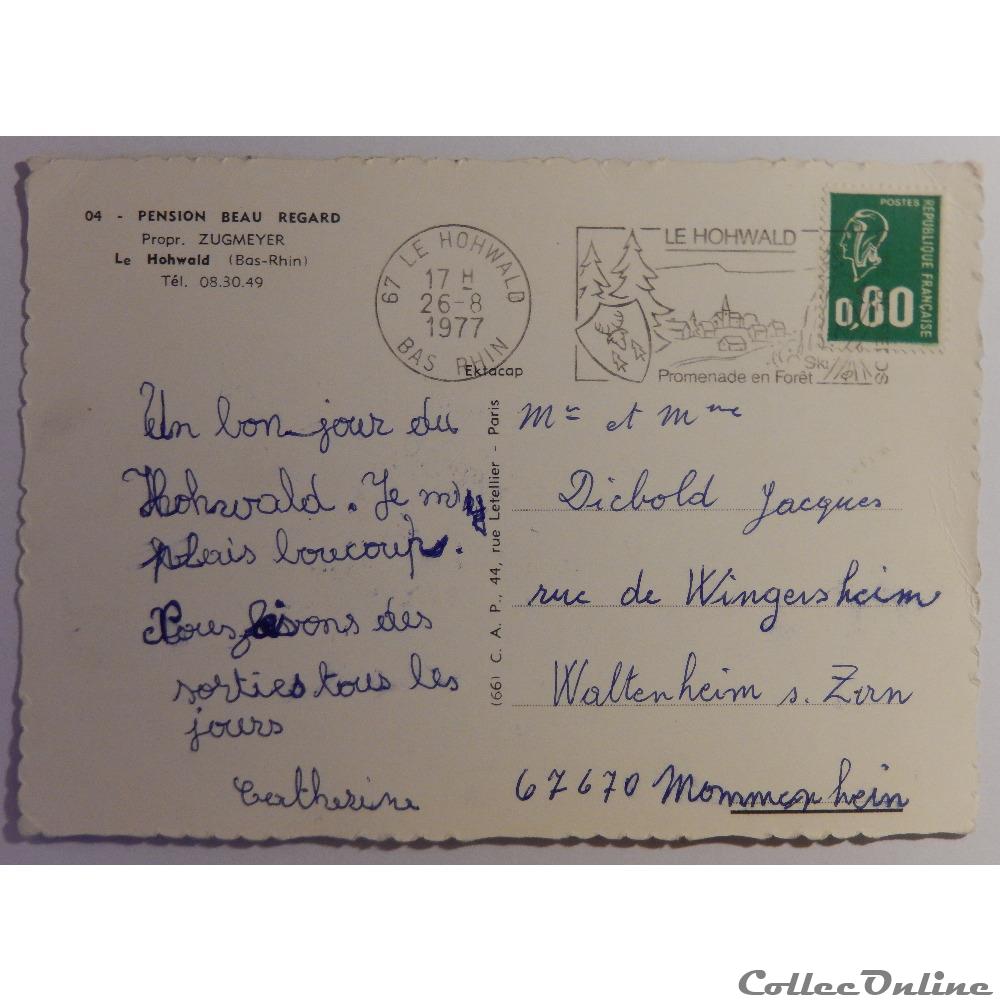 04 - PENSION BEAU REGARD
Propr. ZUGMEYER
Le Hohwald (Bas-Rhin)
Tél. 08.30.49
67 LE HOHWALD
17 H
26-8
1977
BAS RHIN
LE HOHWALD
Ski
Promenade en Forêt
POSTES
RÉPUBLIQUE FRANÇAISE
0,80
Ektacap
Un bon jour du
Hohwald. Je m'y
plais boucoup.
Nous faisons des
sorties tous les
jours
Catherine
(66) C. A. P., 44, rue Letellier - Paris
Mr et Mme
Diebold Jacques
rue de Wingersheim
Waltenheim s. Zorn
67670 Mommenheim
CollecOnline